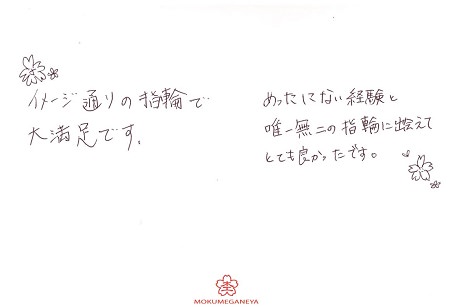 イメージ通りの指輪で
大満足です。
めったにない経験と
唯一無二の指輪に出会えて
とても良かったです。
MOKUMEGANEYA